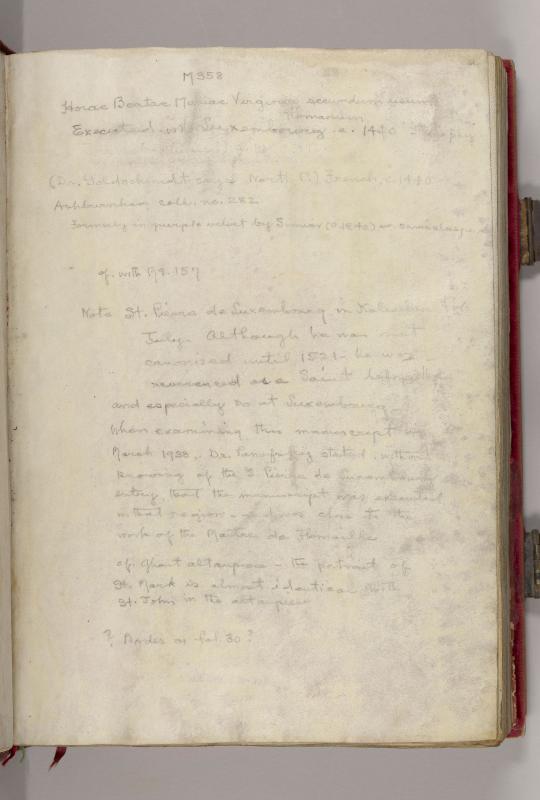 M358
Horae Beatae Mariae Virginis secundum usum
Romanum
Executed in Luxembourg c. 1440
(Dr. Goldschmidt says North (?) French, c. 1440
Ashburnham coll. no. 282
Formerly in purple velvet by Simier (c. 1840) w.
cf. with M. 157
Note St. Pierre de Luxembourg in Kalendar for
July. Although he was not
canonized until 1521 - he was
reverenced as a Saint before
and especially so at Luxembourg
When examining this manuscript in
March 1938, Dr. Panofsky stated, without
knowing of the S. Pierre de Luxembourg
entry, that the manuscript was executed
in that region - and was close to the
work of the Maitre de Flemalle
cf. Ghent altarpiece - the portrait of
St. Mark is almost identical with
St. John in the altarpiece
? Border on fol. 30?